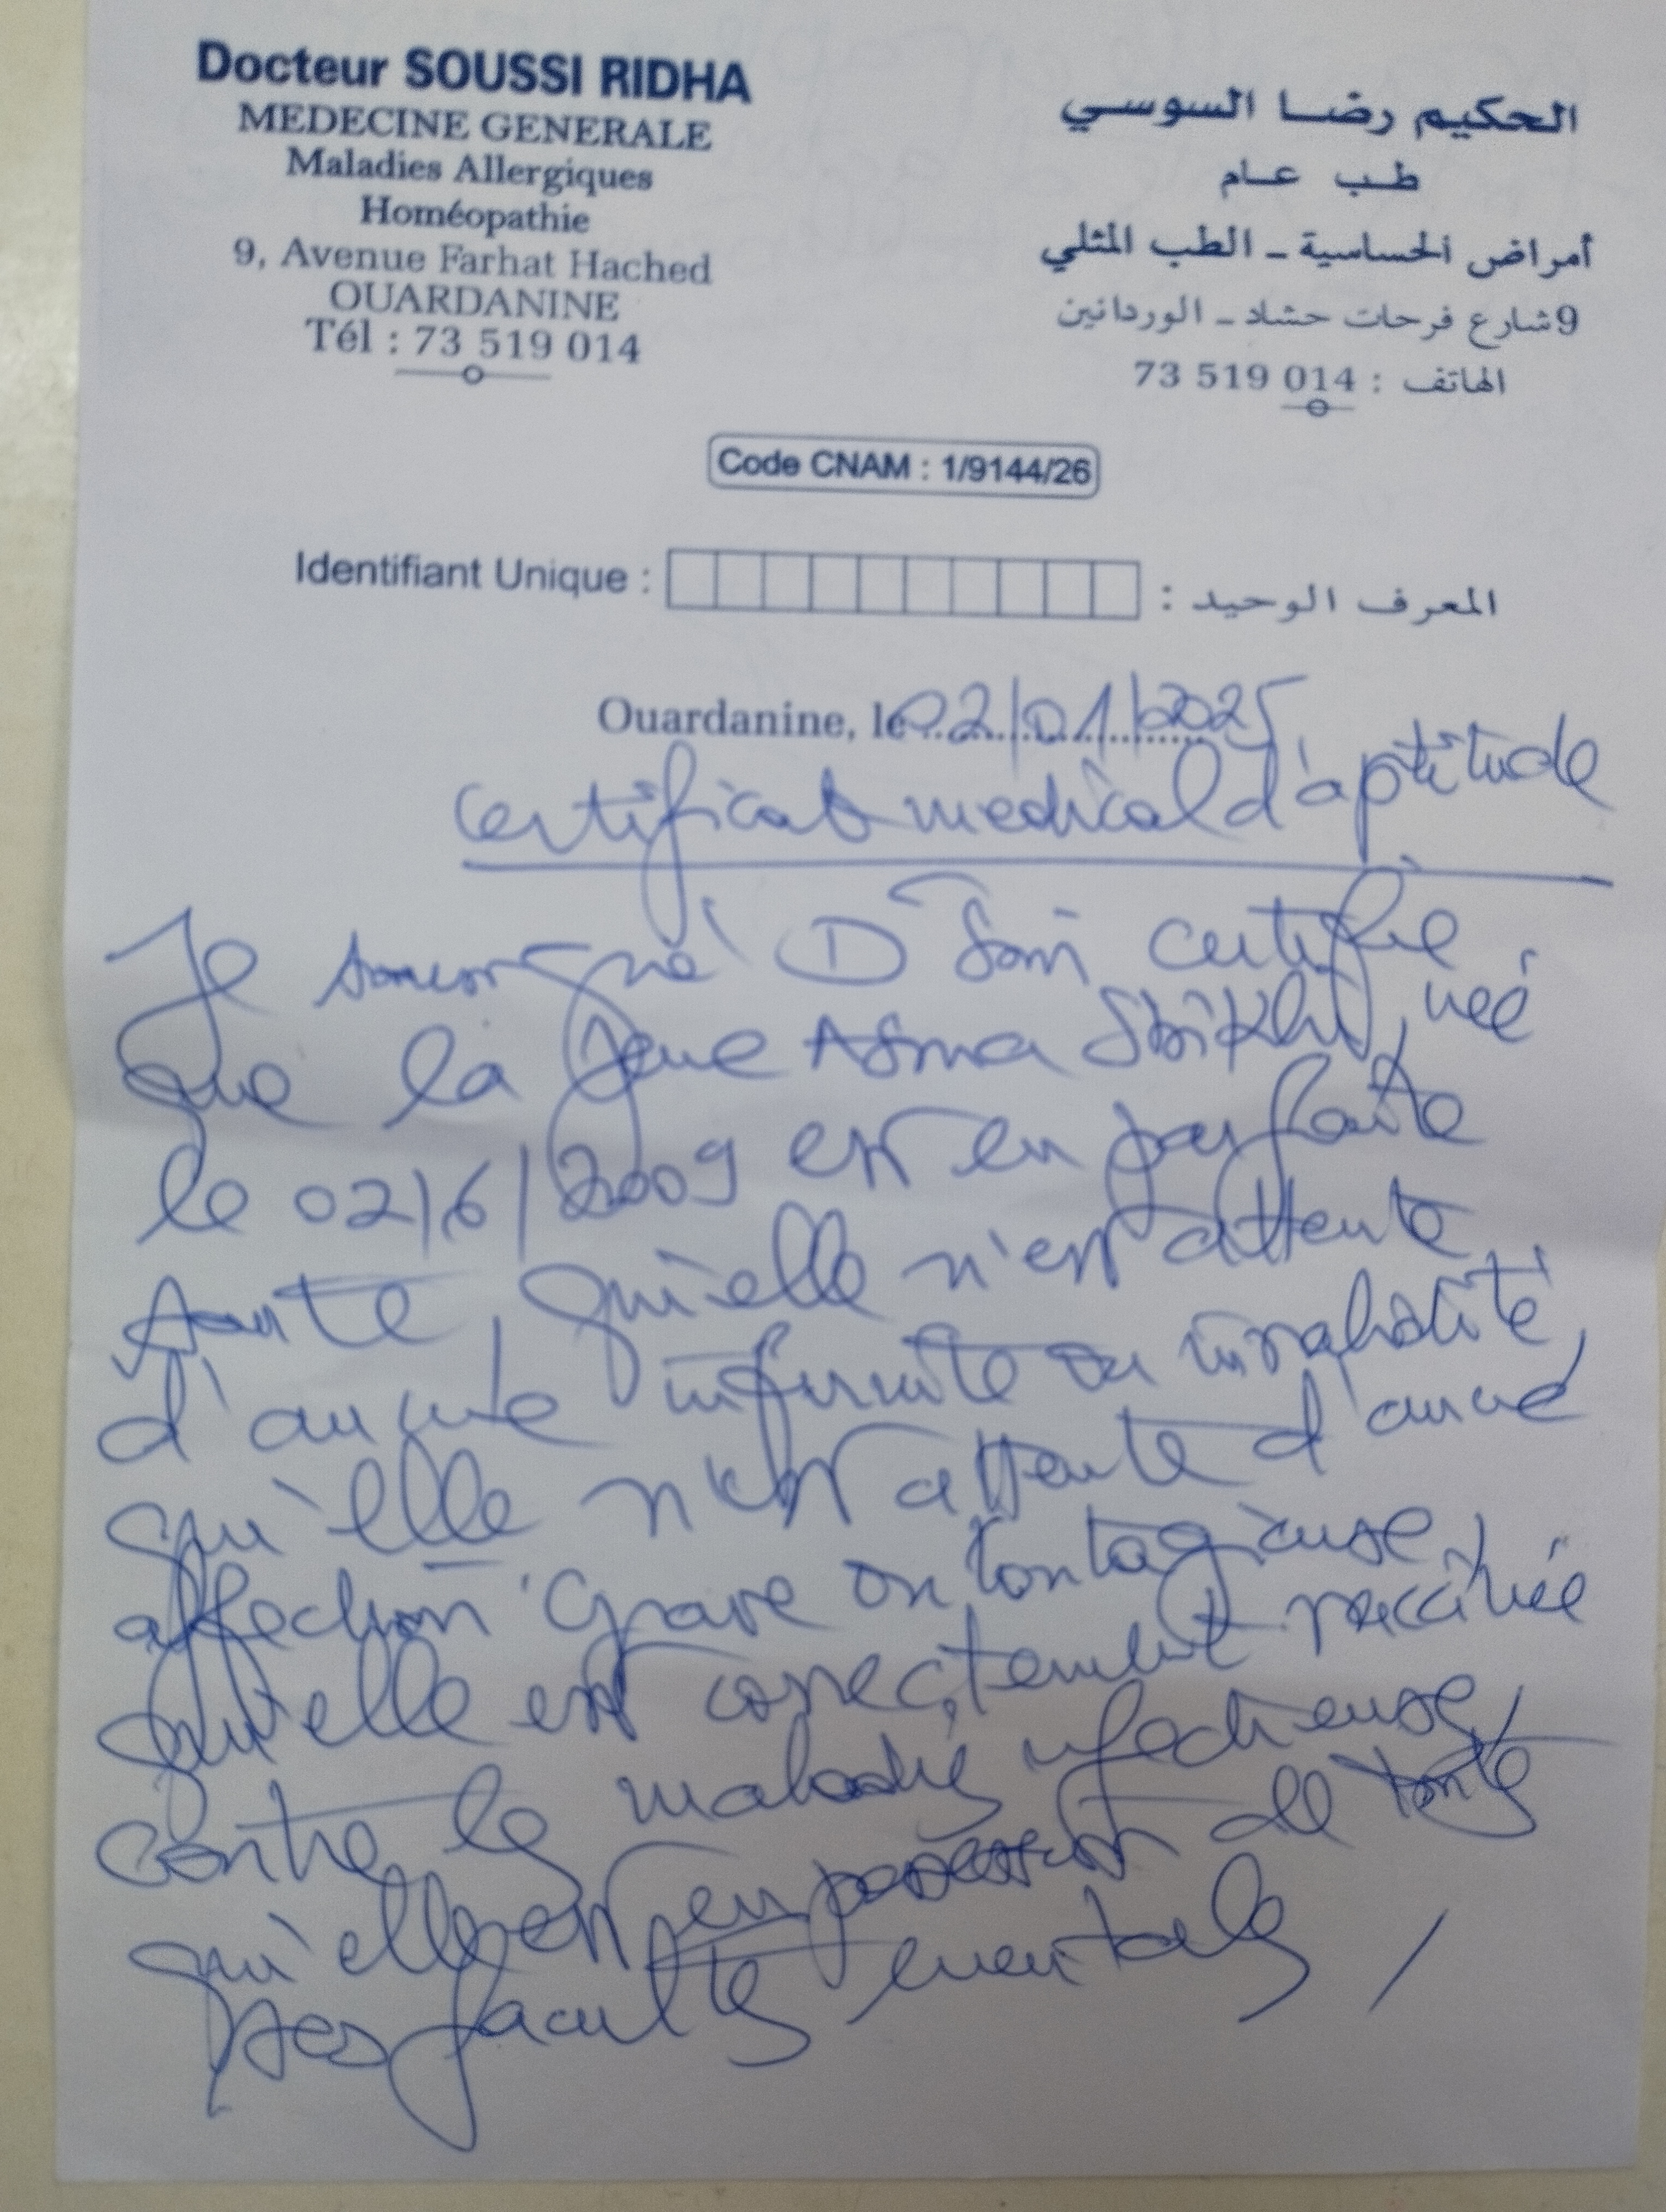 Docteur SOUSSI RIDHA
MEDECINE GENERALE
Maladies Allergiques
Homéopathie
9, Avenue Farhat Hached
OUARDANINE
Tél : 73 519 014
الحكيم رضا السوسي
طب عام
أمراض الحساسية - الطب المثلي
9 شارع فرحات حشاد - الوردانين
الهاتف : 73 519 014
Code CNAM : 1/9144/26
Identifiant Unique : المعرف الوحيد :
Ouardanine, le 02/01/2025
certificat medical d'aptitude
Je soussigné Dr certifie
que la jeune Asma née
le 02/6/2009 est en parfaite
sante, qu'elle n'est attente
d'aucune infirmite ou invalidité,
qu'elle n'est attente d'aucune
affection grave ou contagieuse,
qu'elle est correctement vaccinée
contre les maladies infectieuses,
qu'elle est en possession de toutes
ses facultes mentales /